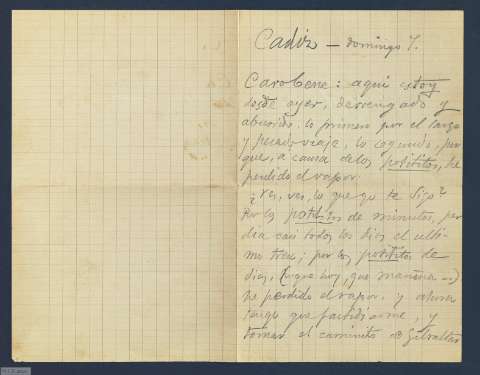 Cadiz — domingo 7.
Caro Cene: aqui estoy
desde ayer, derrengado y
aburrido. lo primero por el largo
y pesado viaje, lo segundo, por
que, a causa de los potitos, he
perdido el vapor.
¿Ves, ves, lo que yo te digo?
Por los potitos de minutos, per
dia casi todos los dias el ulti
mo tren; por los potitos de
dias, (que hoy, que mañana...)
he perdido el vapor, y ahora
tengo que fastidiarme, y
tomar el caminito de Gibraltar